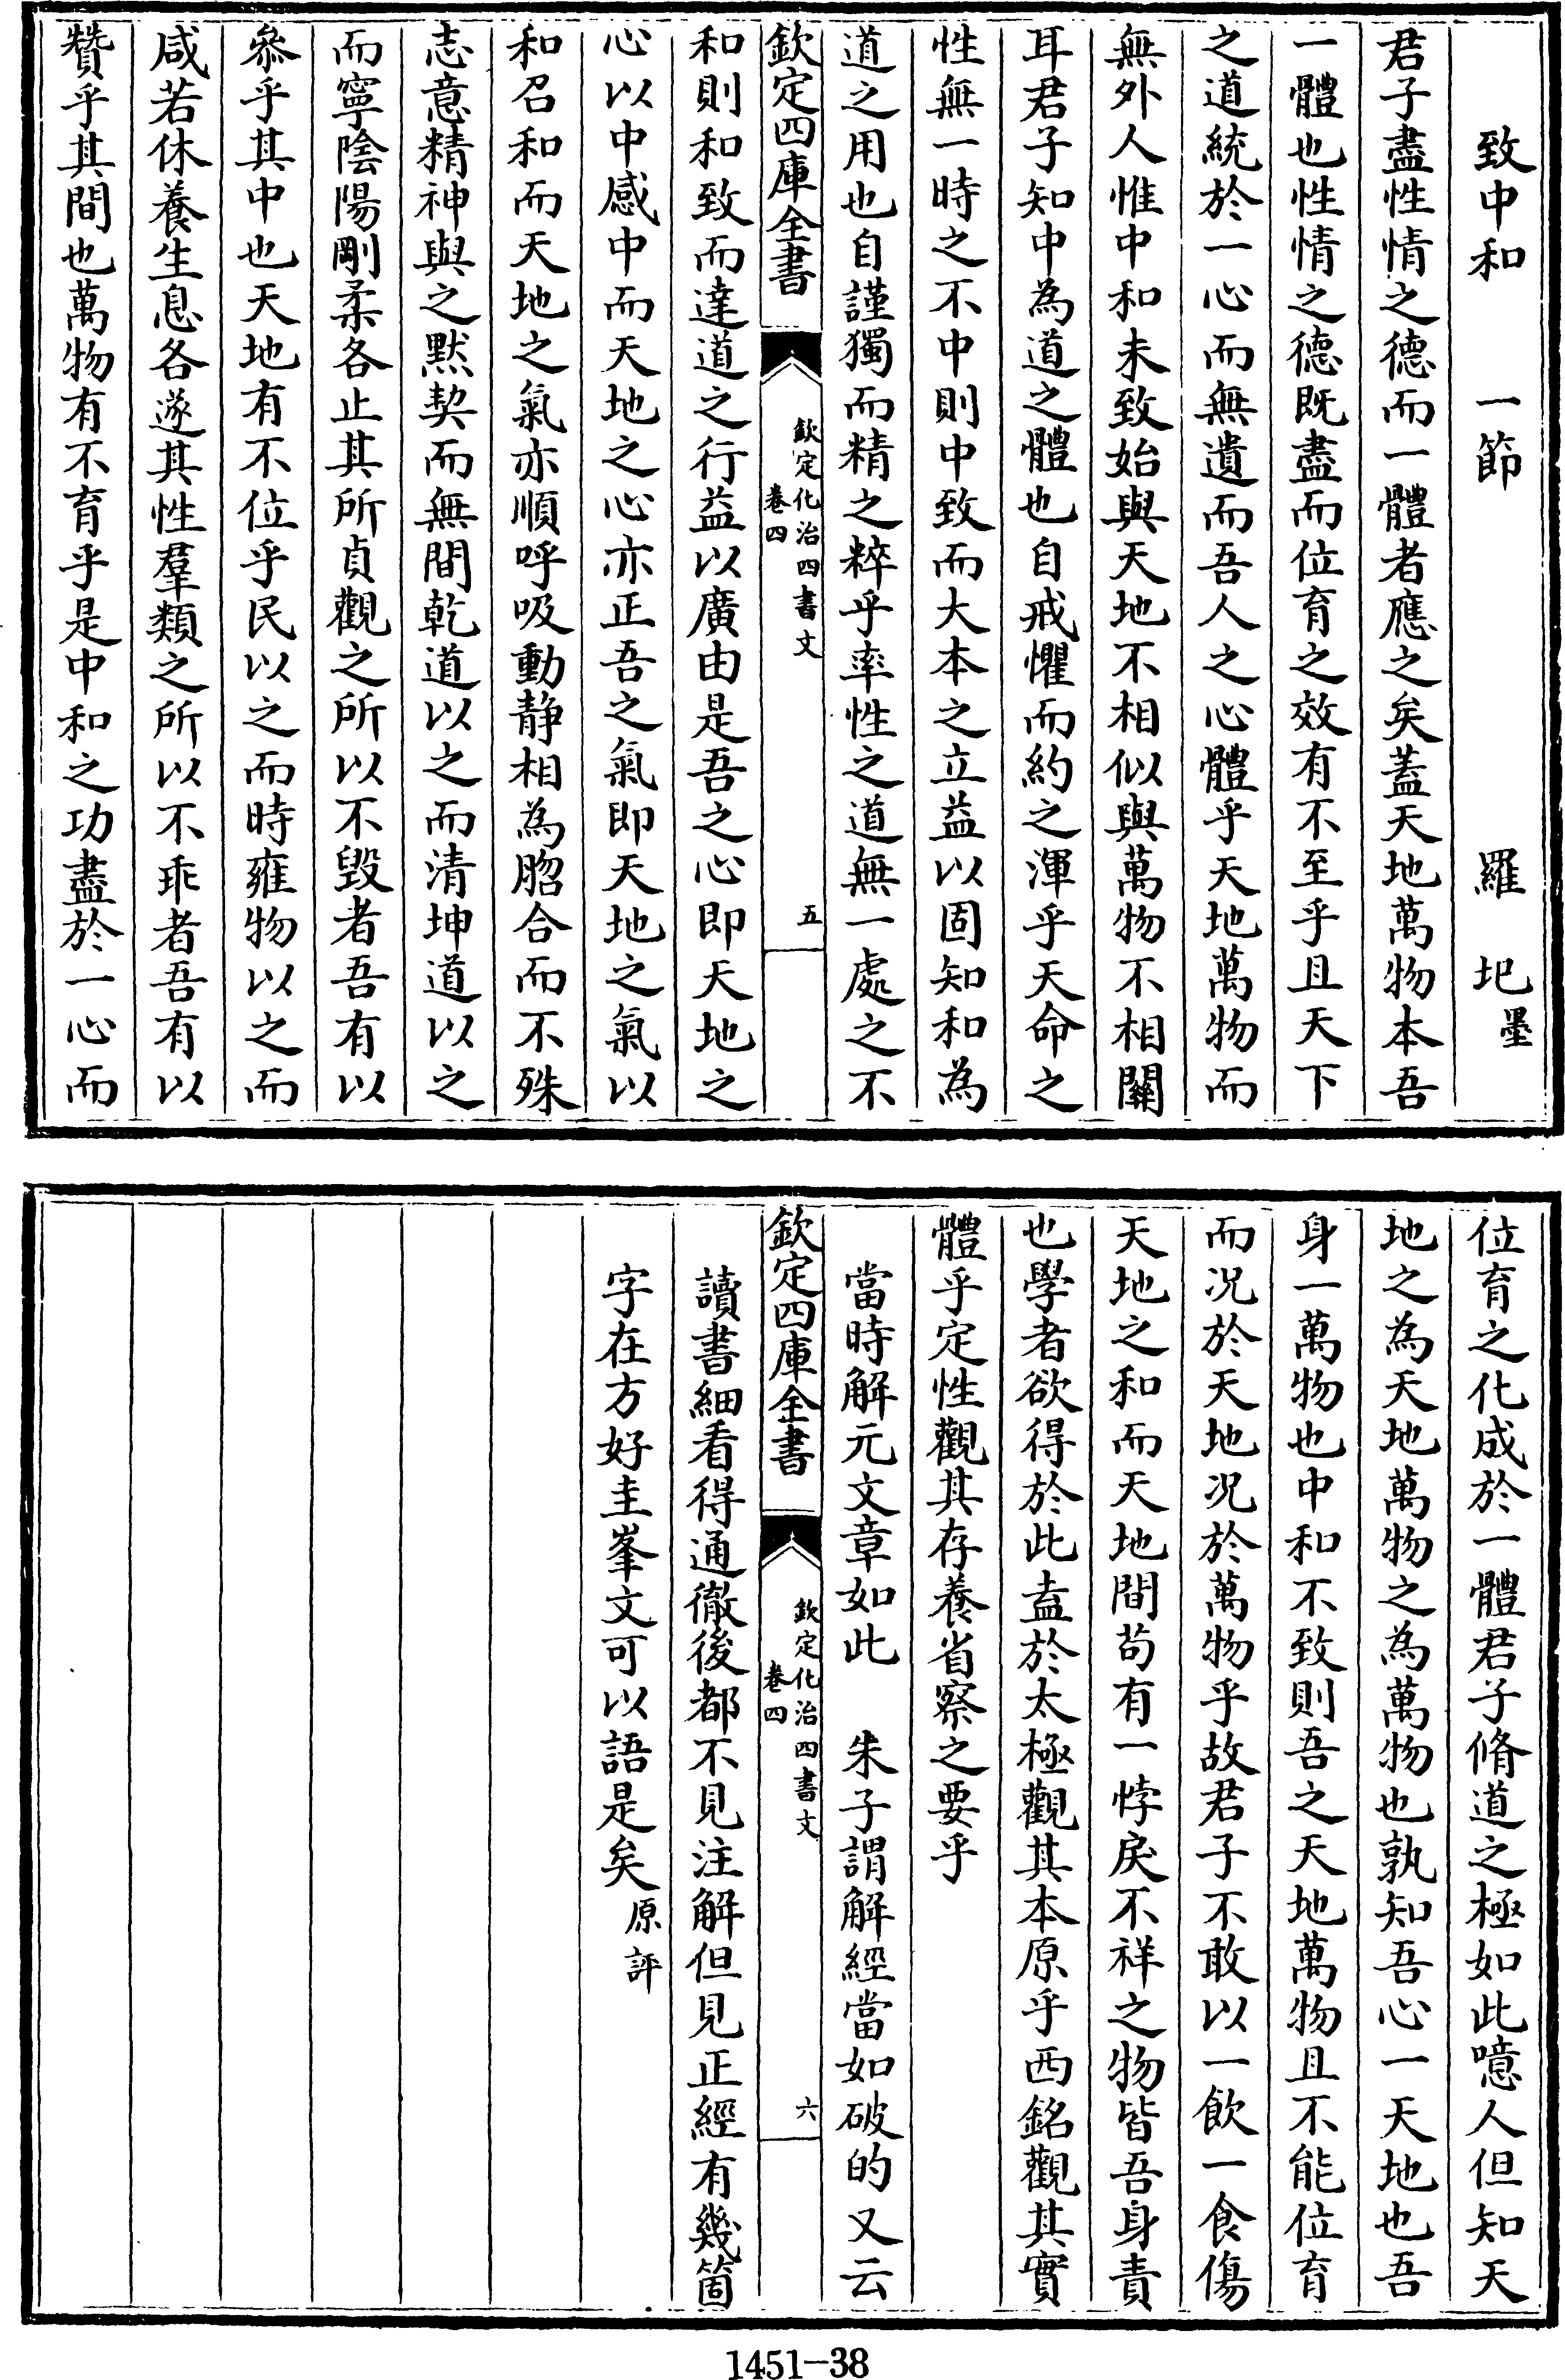 致中和　一節　羅　圯墨
君子盡性情之德而一體者應之矣蓋天地萬物本吾
一體也性情之德既盡而位育之效有不至乎且天下
之道統於一心而無遺而吾人之心體乎天地萬物而
無外人惟中和未致始與天地不相似與萬物不相關
耳君子知中為道之體也自戒懼而約之渾乎天命之
性無一時之不中則中致而大本之立益以固知和為
道之用也自謹獨而精之粹乎率性之道無一處之不
欽定四庫全書　欽定化治四書文　卷四　五
和則和致而達道之行益以廣由是吾之心即天地之
心以中感中而天地之心亦正吾之氣即天地之氣以
和召和而天地之氣亦順呼吸動靜相為脗合而不殊
志意精神與之默契而無間乾道以之而清坤道以之
而寧陰陽剛柔各止其所貞觀之所以不毀者吾有以
叅乎其中也天地有不位乎民以之而時雍物以之而
咸若休養生息各遂其性羣類之所以不乖者吾有以
贊乎其間也萬物有不育乎是中和之功盡於一心而
位育之化成於一體君子脩道之極如此噫人但知天
地之為天地萬物之為萬物也孰知吾心一天地也吾
身一萬物也中和不致則吾之天地萬物且不能位育
而況於天地況於萬物乎故君子不敢以一飲一食傷
天地之和而天地間苟有一悖戾不祥之物皆吾身責
也學者欲得於此盍於太極觀其本原乎西銘觀其實
體乎定性觀其存養省察之要乎
當時解元文章如此　朱子謂解經當如破的又云
欽定四庫全書　欽定化治四書文　卷四　六
讀書細看得通徹後都不見注解但見正經有幾箇
字在方好圭峯文可以語是矣原評
1451-38